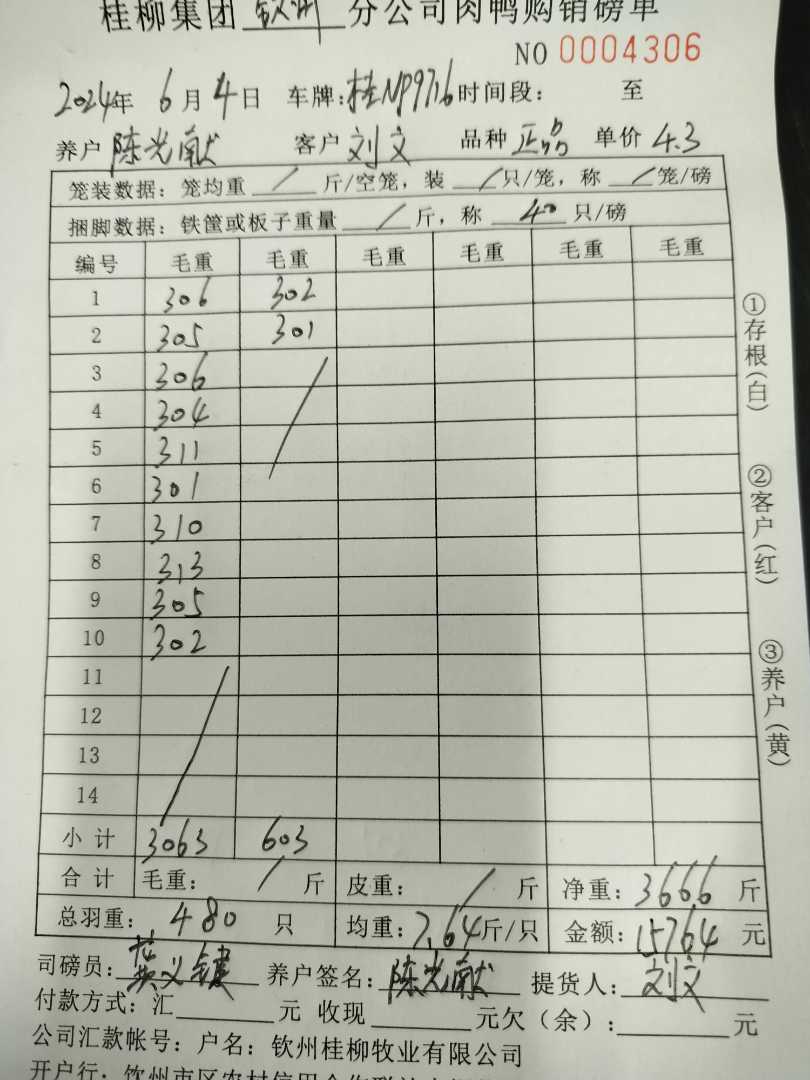 桂柳集团 钦州 分公司肉鸭购销磅单
NO 0004306
2024年 6月4日 车牌:桂NP9716 时间段: 至
养户 陈光献 客户 刘文 品种 正品 单价 4.3
笼装数据: 笼均重 / 斤/空笼, 装 / 只/笼, 称 / 笼/磅
捆脚数据: 铁筐或板子重量 / 斤, 称 40 只/磅
编号 毛重 毛重 毛重 毛重 毛重 毛重
1 306 302
2 305 301
3 306
4 304
5 311
6 301
7 310
8 313
9 305
10 302
11
12
13
14
小计 3063 603
合计 毛重: / 斤 皮重: / 斤 净重: 3666 斤
总羽重: 480 只 均重: 7.64 斤/只 金额: 15764 元
司磅员: 黄义键 养户签名: 陈光献 提货人: 刘文
付款方式: 汇 元 收现 元欠(余): 元
公司汇款帐号: 户名: 钦州桂柳牧业有限公司
开户行: 钦州市区农村信用合作联社
①存根(白)
②客户(红)
③养户(黄)